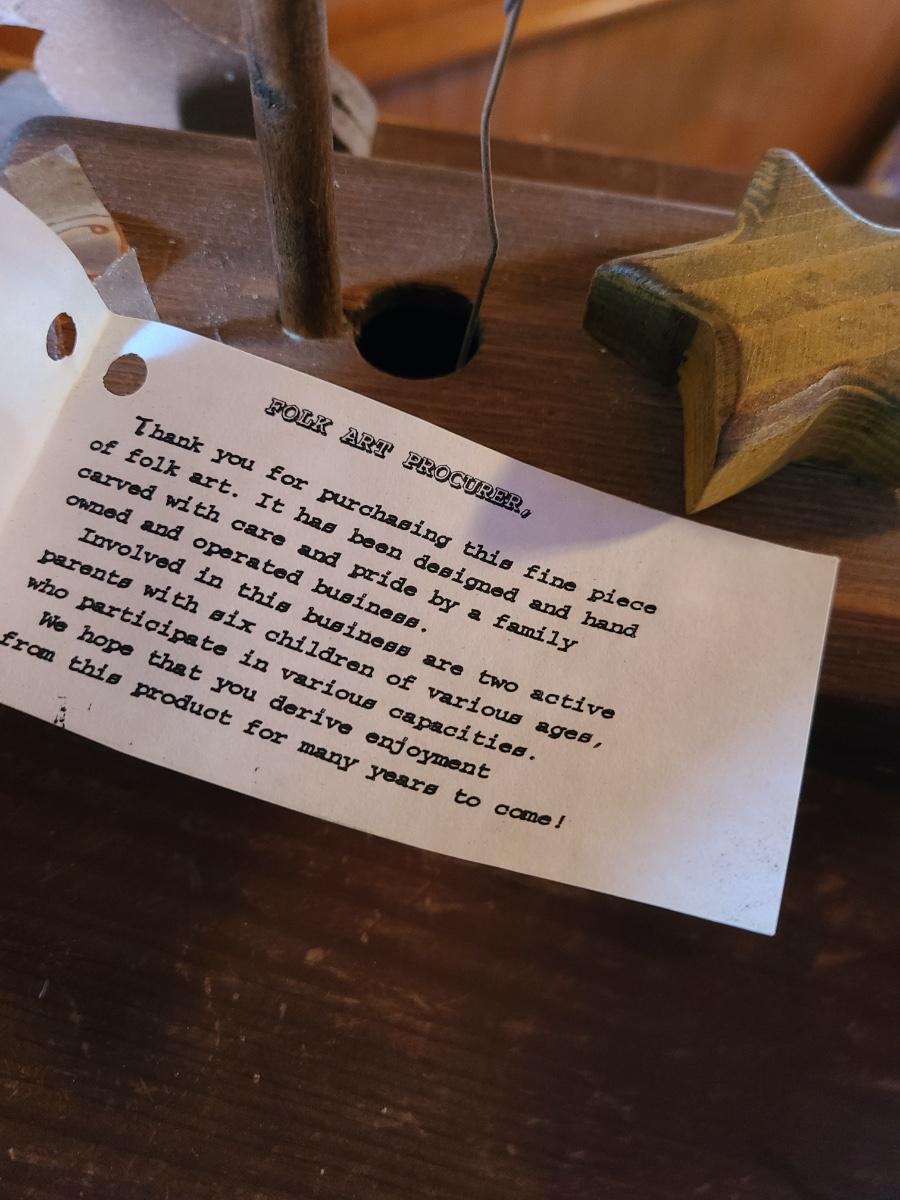 FOLK ART PROCURER,
Thank you for purchasing this fine piece
of folk art. It has been designed and hand
carved with care and pride by a family
owned and operated business.
Involved in this business are two active
parents with six children of various ages,
who participate in various capacities.
We hope that you derive enjoyment
from this product for many years to come!